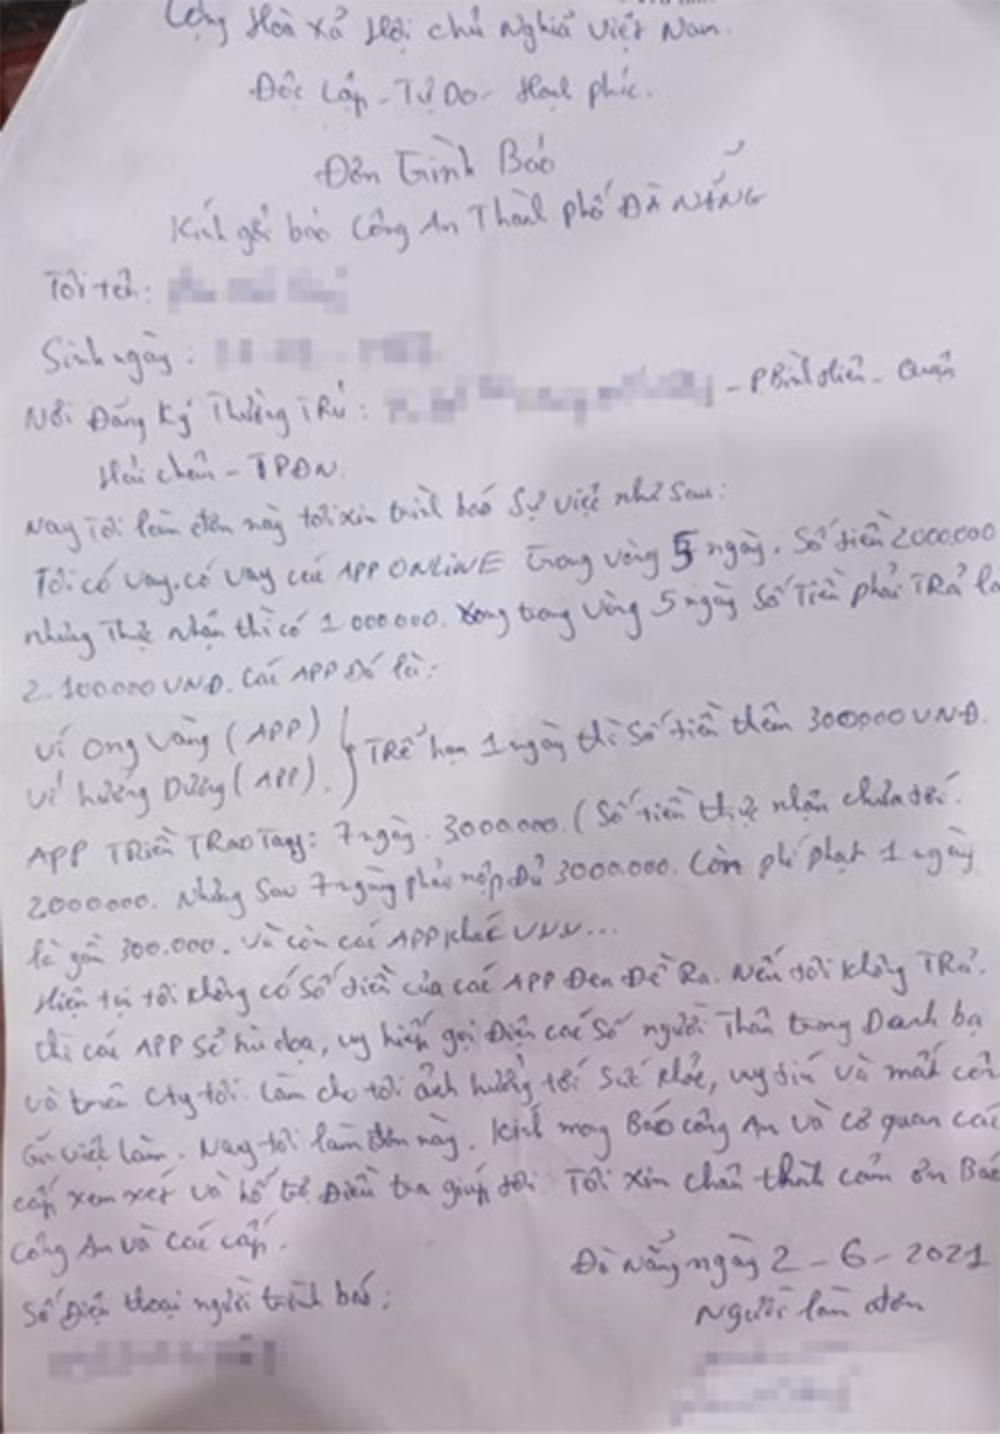 Cộng Hòa Xã Hội chủ Nghĩa Việt Nam.
Độc Lập - Tự Do - Hạnh phúc.
Đơn Trình Báo
Kính gửi báo Công An Thành phố ĐÀ NẴNG
Tôi tên:
Sinh ngày:
Nơi Đăng Ký Thường TRú: - P Bình Hiên - Quận
Hải Châu - TPĐN.
Nay Tôi làm đơn này tôi xin trình báo Sự việc như Sau:
Tôi có vay. có vay các APP ONLINE Trong vòng 5 ngày. Số tiền 2000.000
nhưng Thực nhận thì có 1 000.000. Xong trong vòng 5 ngày Số Tiền phải TRả là
2.100.000 VNĐ. Các APP Đó là:
Ví Ong Vàng (APP)
Ví hướng Dương (APP). } TRễ hạn 1 ngày thì Số tiền thêm 300,000 VNĐ.
APP TRiền TRao Tay: 7 ngày. 3000.000. (Số tiền thực nhận chưa tới
2000.000. Nhưng Sau 7 ngày phải nộp Đủ 3000.000. Còn phí phạt 1 ngày
là gần 300.000. Và còn các APP khác VVV...
Hiện tại tôi không có Số tiền của các APP Đen Đề Ra. Nếu tôi không TRả.
thì các APP Sẽ hù dọa, uy hiếp gọi Điện các Số người Thân trong Danh bạ
và trên Cty tôi. Làm cho tôi ảnh hưởng tới Sức khỏe, uy tín và mất cơ
Gi việc làm. Nay tôi làm đơn này. Kính mong Báo công An và cơ quan các
cấp xem xét và hổ trợ Điều tra giúp tôi. Tôi xin chân thành cảm ơn Báo
Công An và các cấp.
Đà Nẵng ngày 2 - 6 - 2021
Số Điện thoại người trình báo:
Người làm đơn